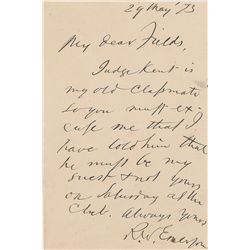 29 May '73
My dear Fields,
Judge Kent is
my old Classmate
so you must ex-
cuse me that I
have told him that
he must be my
guest & not yours
on Saturday at the
Club. Always Yours
R. W. Emerson